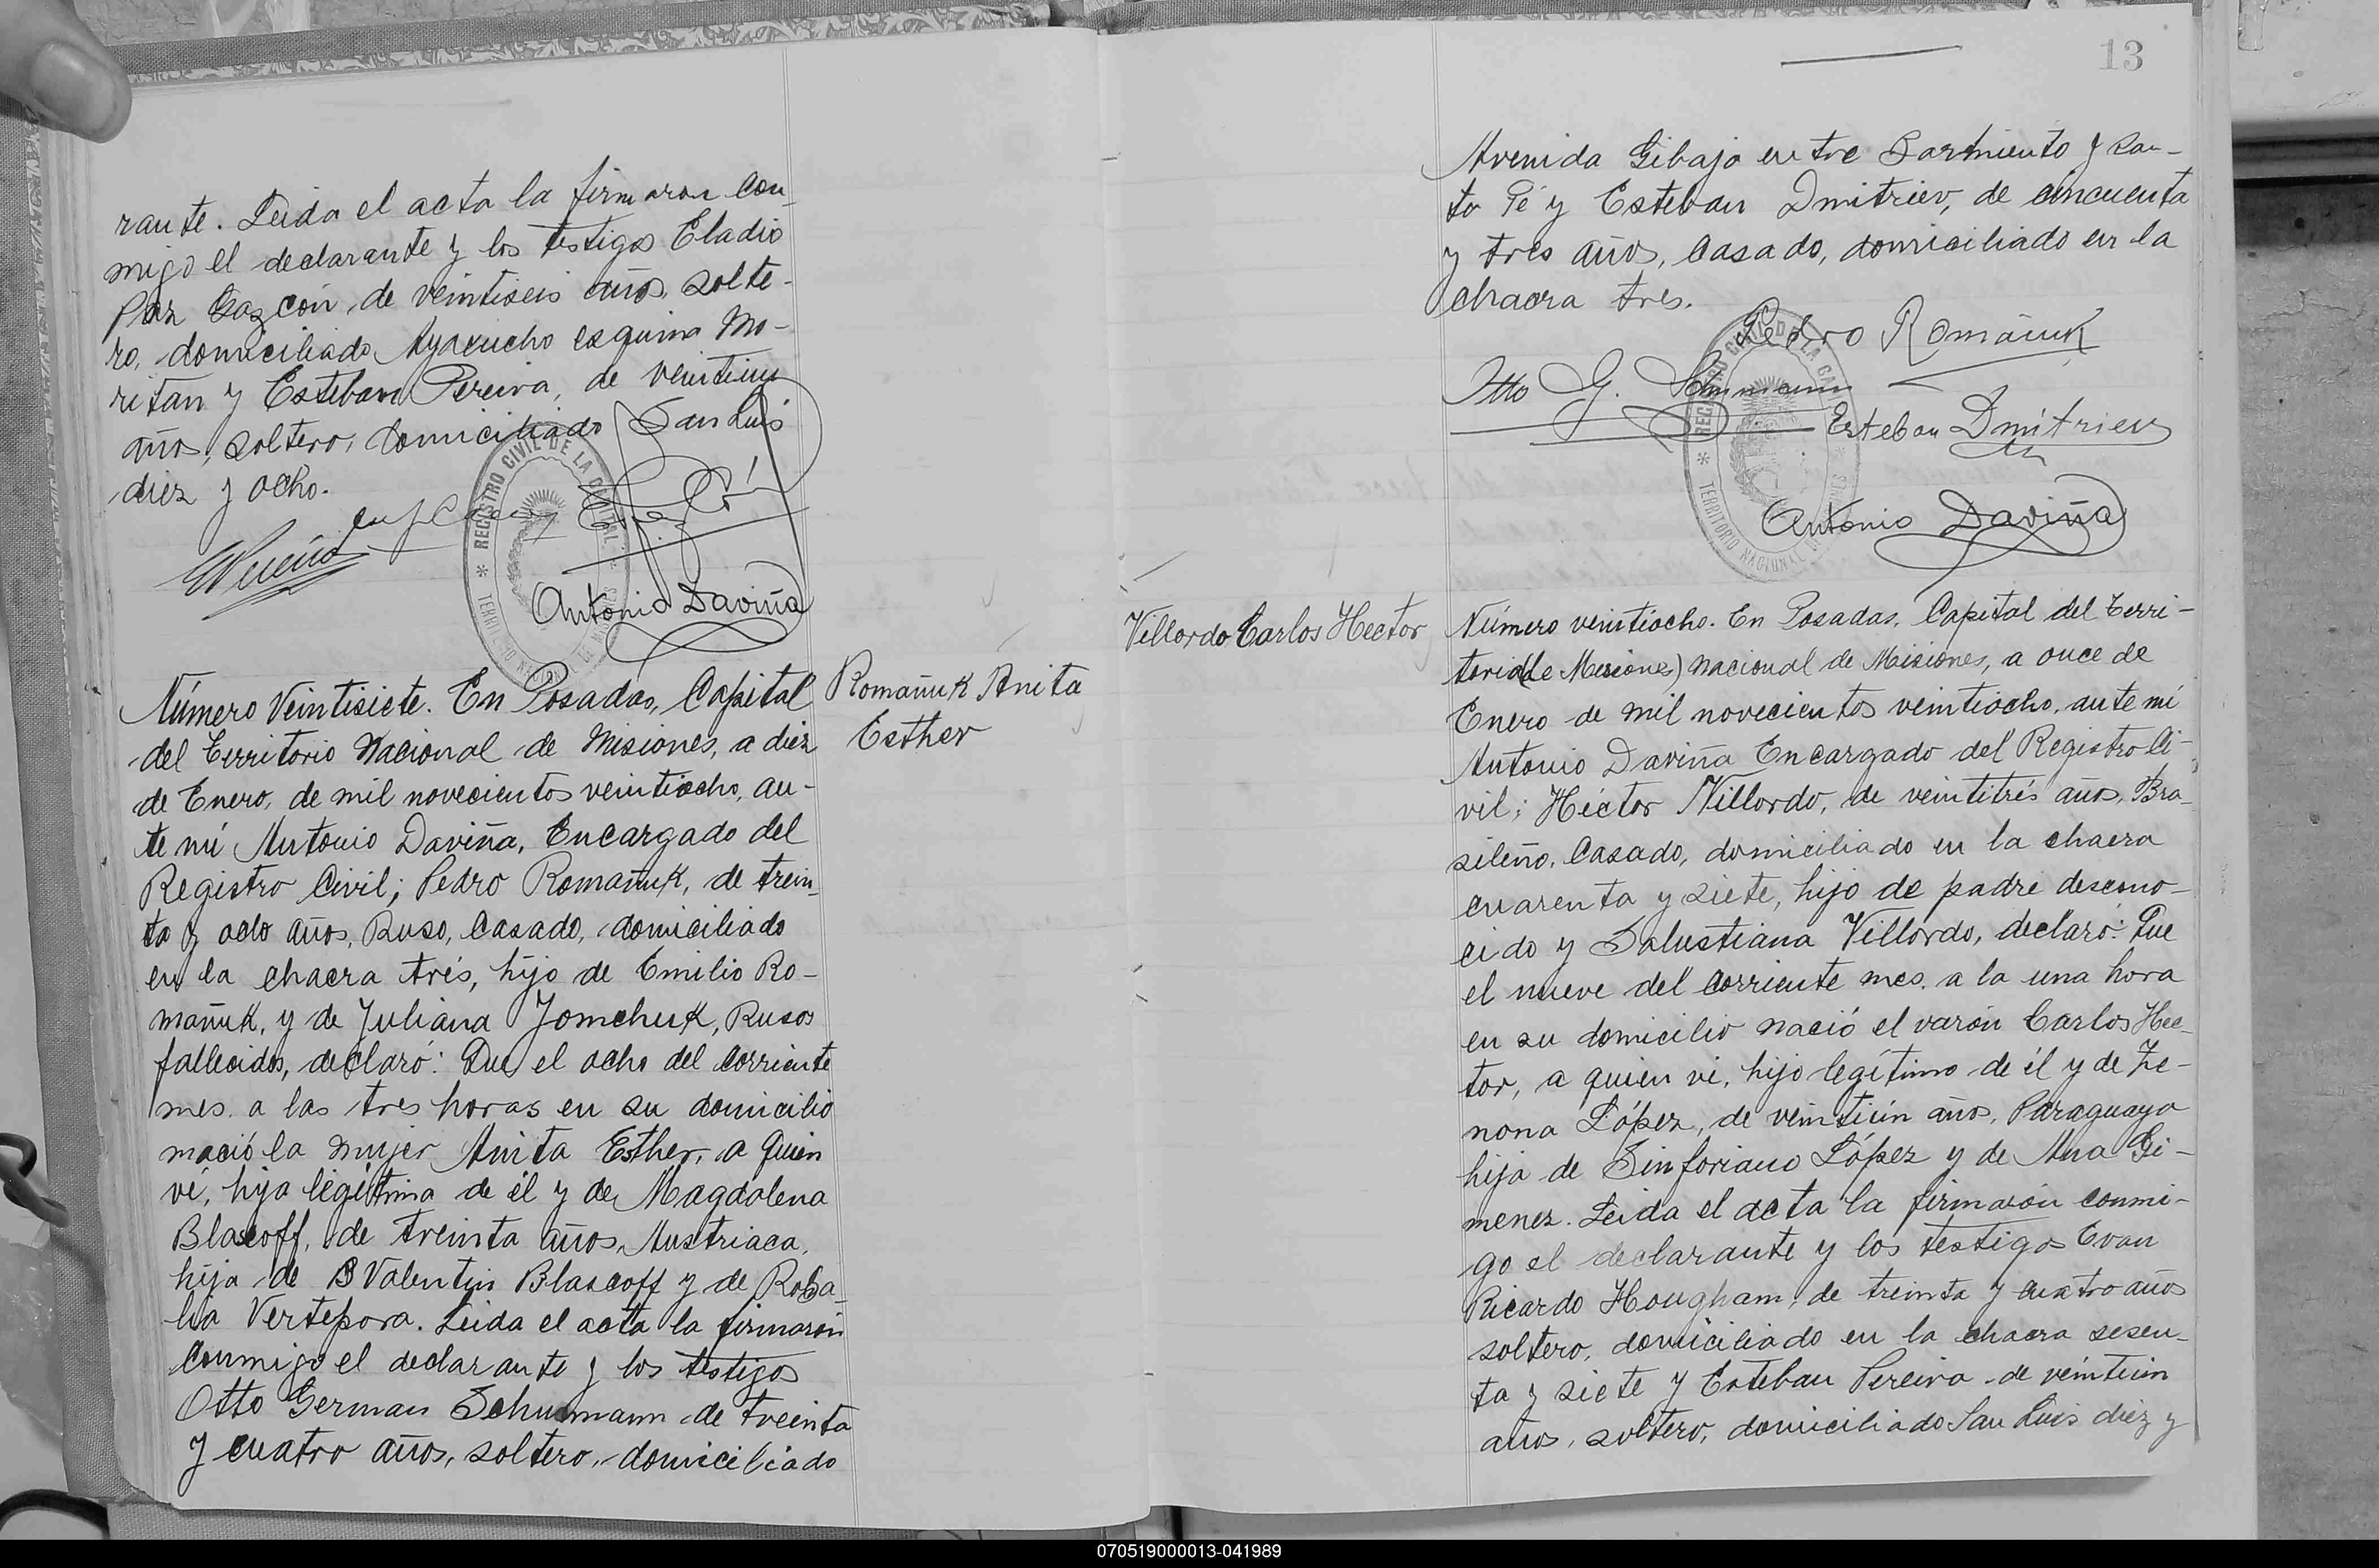 rante. Leida el acta la firmaron con-
migo el declarante y los testigos Eladio
Paz Gazcón, de veintiseis años, solte-
ro, domiciliado Ayacucho esquina Mo-
ritan y Esteban Pereira, de veintiun
años, soltero, domiciliado San Luis
diez y ocho.
REGISTRO CIVIL DE LA CAPITAL
Antonio Daviña
Número Veintisiete. En Posadas, Capital
del Territorio Nacional de Misiones, a diez
de Enero, de mil novecientos veintiocho, an-
te mí Antonio Daviña, Encargado del
Registro Civil; Pedro Romañuk, de trein-
ta y ocho años, Ruso, Casado, domiciliado
en la chacra trés, hijo de Emilio Ro-
mañuk, y de Juliana Jomchuk, Rusos
fallecidos, declaró: Que el ocho del corriente
mes. a las tres horas en su domicilio
nació la mujer Anita Esther, a quien
ví, hija legítima de él y de Magdalena
Blascoff, de treinta años, Austriaca,
hija de B Valentin Blascoff y de Rosa-
lia Vertepora. Leida el acta la firmarón
conmigo el declarante y los testigos
Otto German Schumann de treinta
y cuatro años, soltero, domiciliado
Romañuk Anita
Esther
13
Avenida Gibaja entre Sarmiento y San-
ta Fé y Esteban Dmitriev, de cincuenta
y tres años, Casado, domiciliado en la
chacra tres.
Pedro Romañuk
Otto G. Schumann
Esteban Dmitriev
REGISTRO CIVIL DE LA CAPITAL
TERRITORIO NACIONAL DE MISIONES
Antonio Daviña
Villordo Carlos Hector
Número veintiocho. En Posadas, Capital del Terri-
torio(de Misiones) nacional de Misiones, a once de
Enero de mil novecientos veintiocho, ante mí
Antonio Daviña Encargado del Registro Ci-
vil; Héctor Villordo, de veintitrés años, Bra-
sileño, Casado, domiciliado en la chacra
cuarenta y siete, hijo de padre descono-
cido y Salustiana Villordo, declaró: Que
el nueve del corriente mes. a la una hora
en su domicilio nació el varón Carlos Hec-
tor, a quien ví, hijo legítimo de él y de Ze-
nona López, de veintiún años, Paraguaya
hija de Sinforiano López y de Ana Gi-
menez. Leida el acta la firmarón conmi-
go el declarante y los testigos Evan
Ricardo Hougham, de treinta y cuatro años
soltero, domiciliado en la chacra sesen-
ta y siete y Esteban Pereira de veintiún
años, soltero, domiciliado San Luis diez y
070519000013-041989